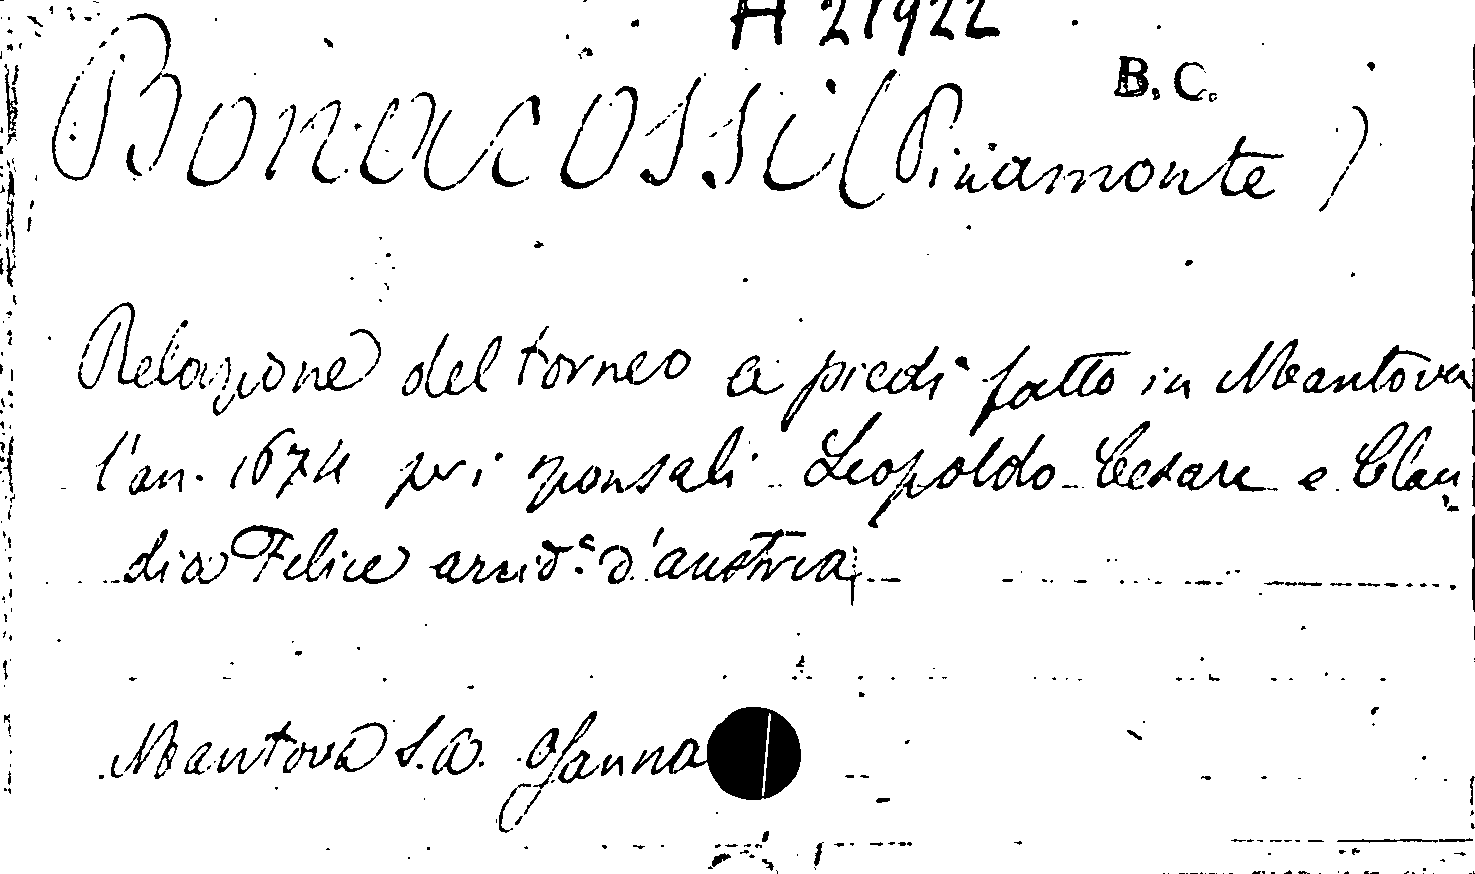 A 21922
B. C.
Bonacossi (Piriamonte)
Relazione del torneo a piedi fatto in Mantova
l'an. 1674 per i sponsali Leopoldo Cesare e Clau-
dia Felice arcid.ᵉ d'austria
Mantova s.a. Osanna